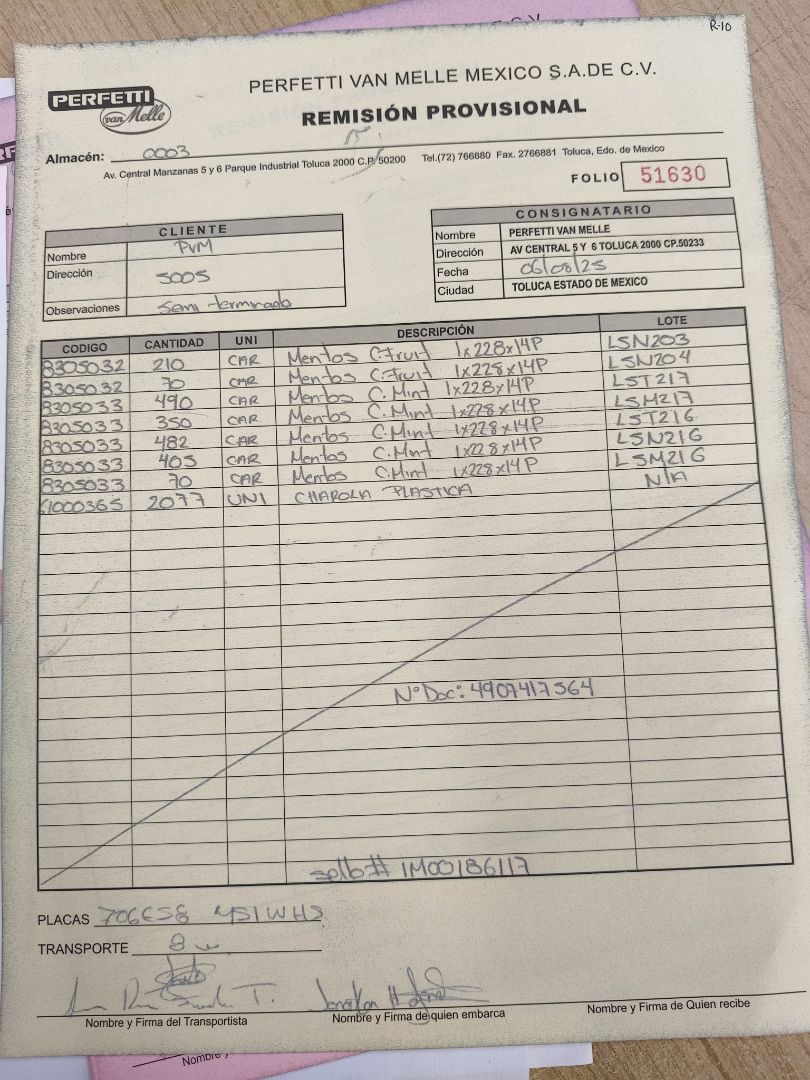 R-10
PERFETTI
van Melle
PERFETTI VAN MELLE MEXICO S.A.DE C.V.
REMISIÓN PROVISIONAL
Almacén: 0003
Av. Central Manzanas 5 y 6 Parque Industrial Toluca 2000 C.P. 50200 Tel.(72) 766880 Fax. 2766881 Toluca, Edo. de Mexico
FOLIO 51630
CLIENTE
Nombre PVM
Dirección 5005
Observaciones Semi terminado
CONSIGNATARIO
Nombre PERFETTI VAN MELLE
Dirección AV CENTRAL 5 Y 6 TOLUCA 2000 CP.50233
Fecha 06/08/25
Ciudad TOLUCA ESTADO DE MEXICO
CODIGO CANTIDAD UNI DESCRIPCIÓN LOTE
8305032 210 CAR Mentos C.Fruit 1x228x14P LSN203
8305032 70 CAR Mentos C.Fruit 1x228x14P LSN204
8305033 490 CAR Mentos C.Mint 1x228x14P LST217
8305033 350 CAR Mentos C.Mint 1x228x14P LSM217
8305033 482 CAR Mentos C.Mint 1x228x14P LST216
8305033 405 CAR Mentos C.Mint 1x228x14P LSN216
8305033 70 CAR Mentos C.Mint 1x228x14P LSM216
61000365 2077 UNI CHAROLA PLASTICA N/A
N° Doc: 4907417364
sello# 1M00186117
PLACAS 706ES8 451WH2
TRANSPORTE
Nombre y Firma del Transportista
Nombre y Firma de quien embarca
Nombre y Firma de Quien recibe